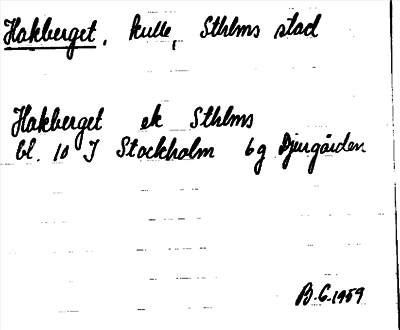 Hakberget, kulle, Sthlms stad
Hakberget ek Sthlms
bl. 10 I Stockholm 6g Djurgården
B.G.1959